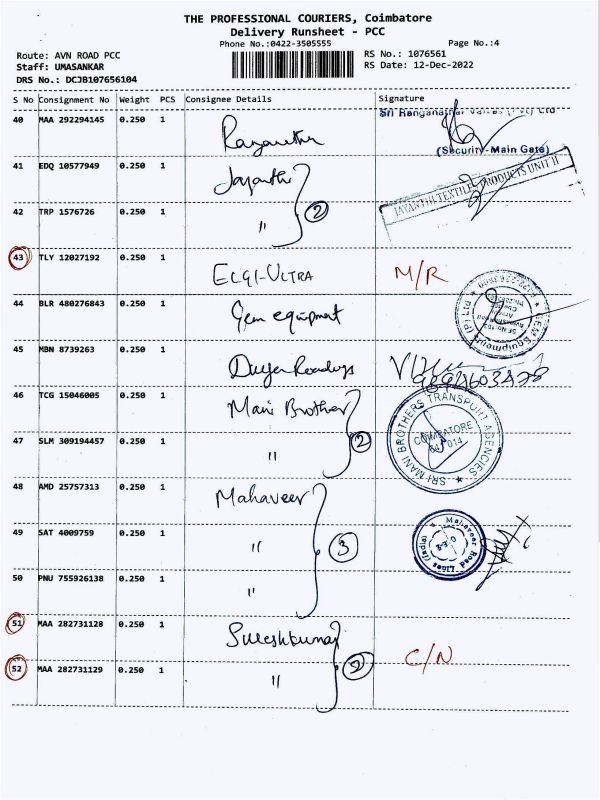 THE PROFESSIONAL COURIERS, Coimbatore
Delivery Runsheet - PCC
Phone No.:0422-3505555
Page No.:4
Route: AVN ROAD PCC
RS No.: 1076561
Staff: UMASANKAR
RS Date: 12-Dec-2022
DRS No.: DCJB107656104
S No Consignment No Weight PCS Consignee Details Signature
40 MAA 292294145 0.250 1
(Security-Main Gate)
41 EDQ 10577949 0.250 1 Jayanthi
JAYANTHI TEXTILE PRODUCTS UNIT II
42 TRP 1576726 0.250 1 " 2
43 TLY 12027192 0.250 1 ELGI-ULTRA M/R
44 BLR 480276843 0.250 1 Gem equipment
GEM Equipments (P) Ltd
45 MBN 8739263 0.250 1
46 TCG 15046005 0.250 1 Mani Brother
SRI MANI BROTHERS TRANSPORT AGENCIES
COIMBATORE
47 SLM 309194457 0.250 1 " 2
48 AMD 25757313 0.250 1 Mahaveer
49 SAT 4009759 0.250 1 " 3
Mahaveer Road Lines (India)
50 PNU 755926138 0.250 1 "
51 MAA 282731128 0.250 1 Sureshkumar
C/N
52 MAA 282731129 0.250 1 " 2